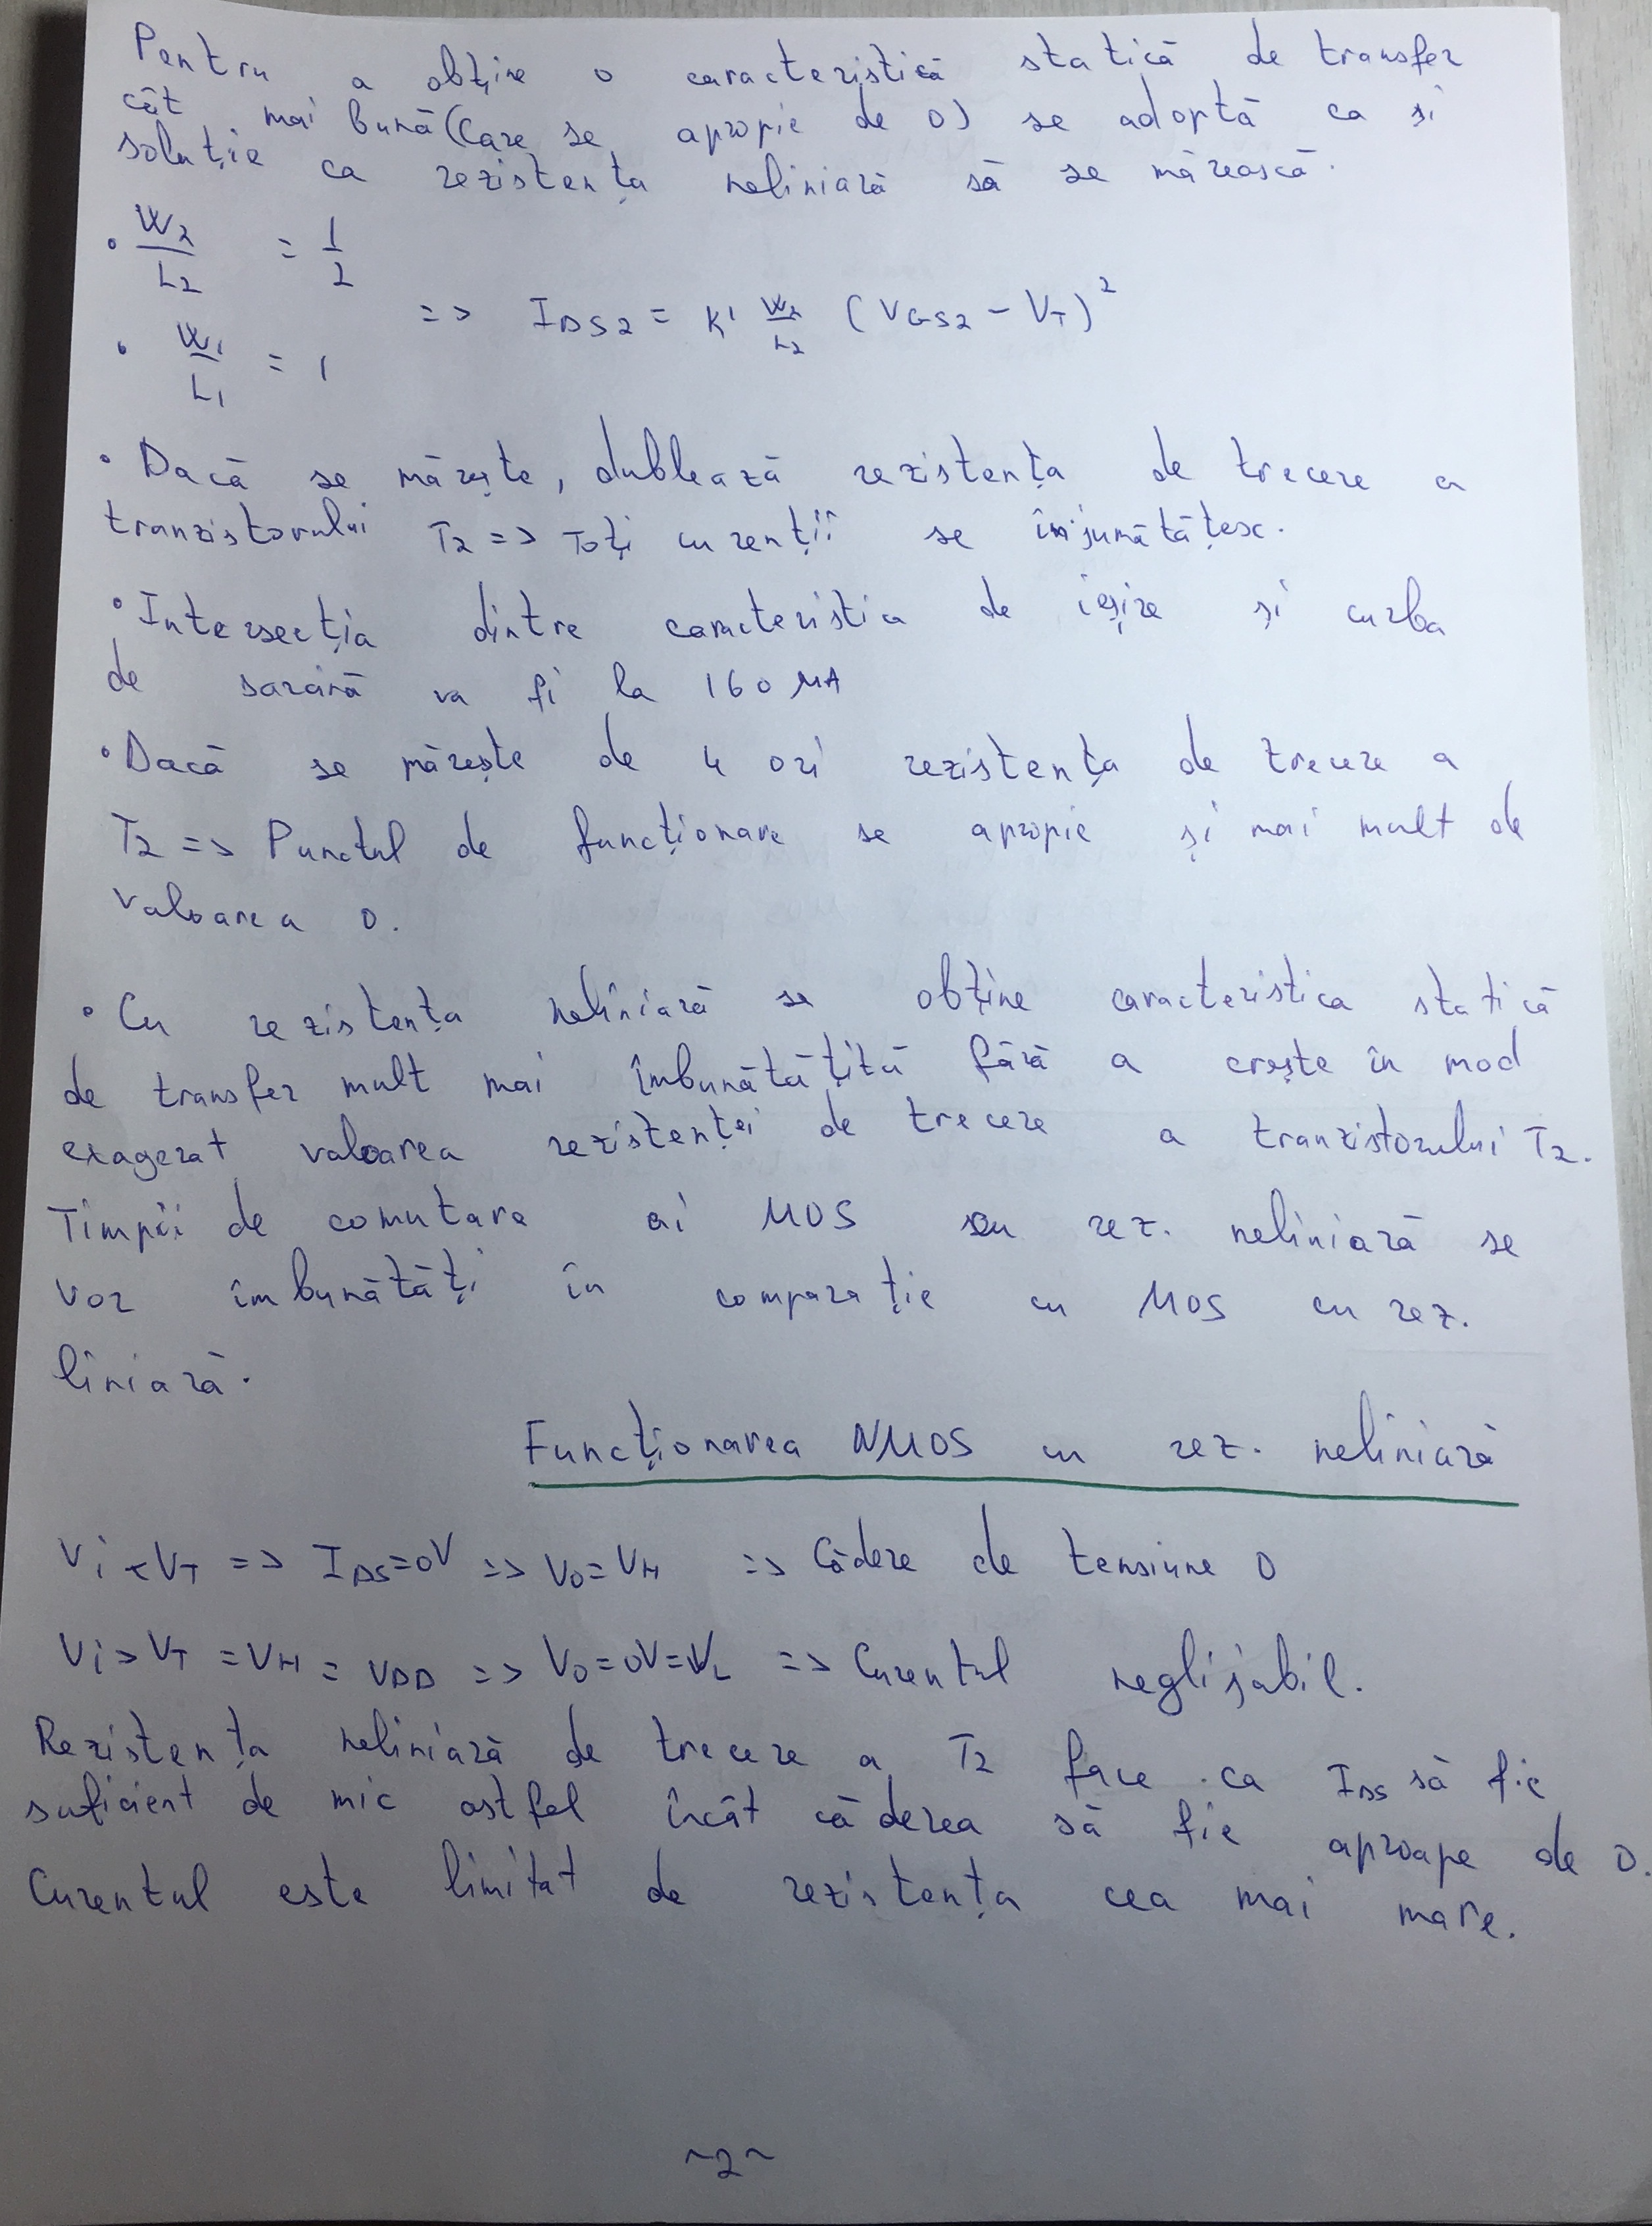 Pentru a obține o caracteristică statică de transfer
cât mai bună (Care se apropie de 0) se adoptă ca și
soluție ca rezistența neliniară să se mărească.
• W2/L2 = 1/2
=> IDS2 = K' W2/L2 (VGS2 - VT)²
• W1/L1 = 1
• Dacă se mărește, dublează rezistența de trecere a
tranzistorului T2 => Toți curenții se înjumătățesc.
• Intersecția dintre caracteristica de ieșire și curba
de sarcină va fi la 160 µA
• Dacă se mărește de 4 ori rezistența de trecere a
T2 => Punctul de funcționare se apropie și mai mult de
valoarea 0.
• Cu rezistența neliniară se obține caracteristica statică
de transfer mult mai îmbunătățită fără a crește în mod
exagerat valoarea rezistenței de trecere a tranzistorului T2.
Timpii de comutare ai MOS cu rez. neliniară se
vor îmbunătăți în comparație cu MOS cu rez.
liniară.
Funcționarea NMOS cu rez. neliniară
Vi < VT => IDS=0V => VO=VH => Cădere de tensiune 0
Vi > VT = VH = VDD => VO=0V=VL => Curentul neglijabil.
Rezistența neliniară de trecere a T2 face ca IDS să fie
suficient de mic astfel încât căderea să fie aproape de 0.
Curentul este limitat de rezistența cea mai mare.
~2~